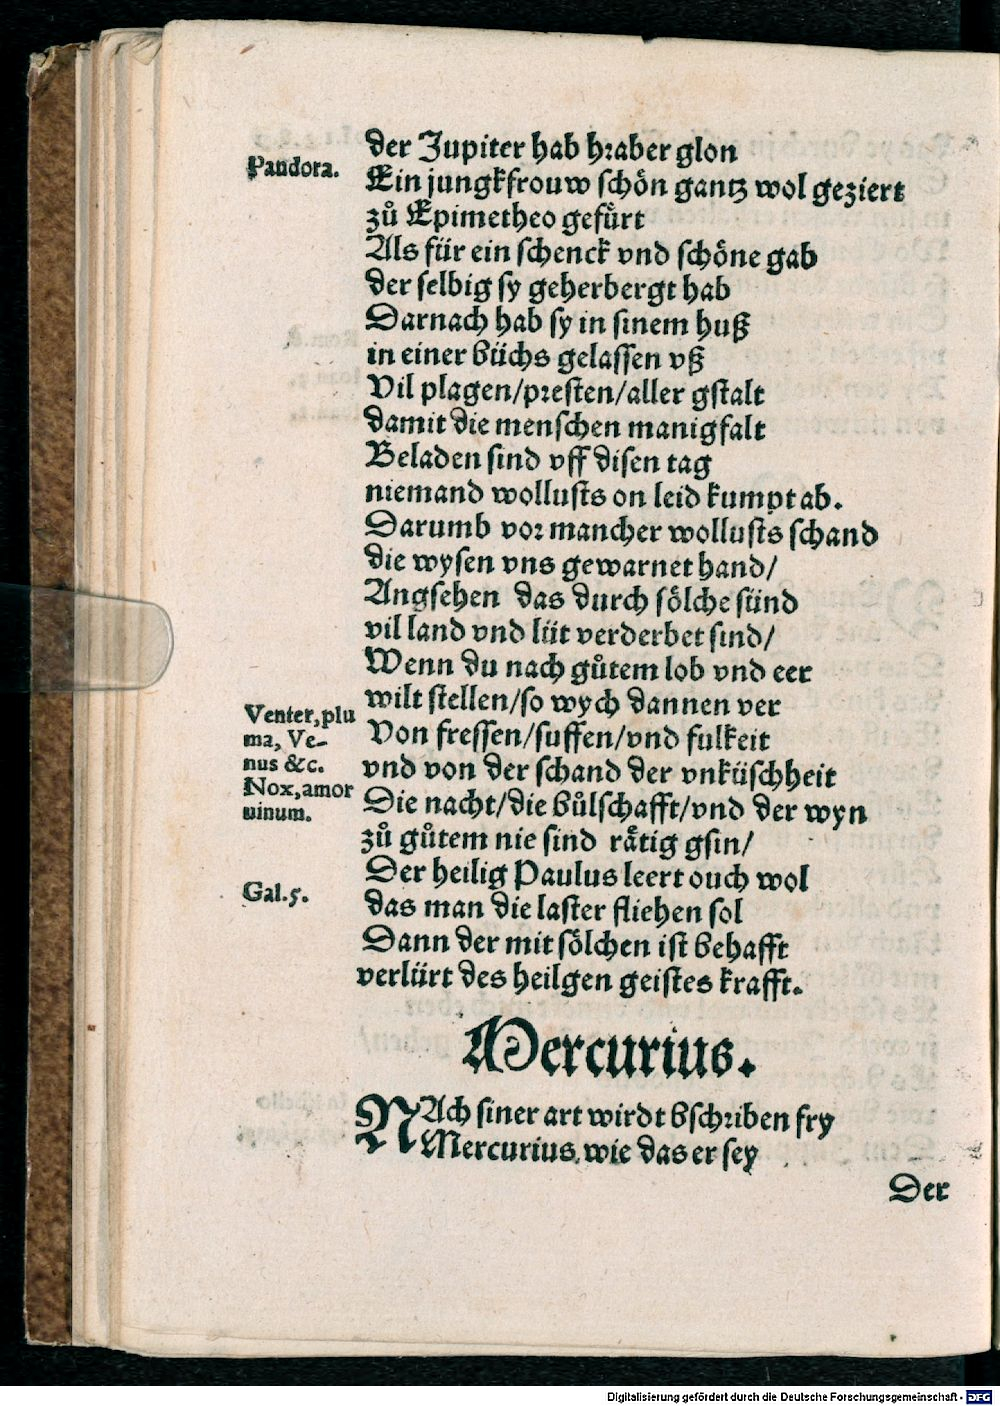 der Jupiter hab hraber glon
Pandora.
Ein jungkfrouw schön gantz wol geziert
zů Epimetheo gefuͤrt
Als für ein schenck vnd schöne gab
der selbig sy geherbergt hab
Darnach hab sy in sinem huß
in einer büchs gelassen vß
Vil plagen/presten/aller gstalt
damit die menschen manigfalt
Beladen sind vff disen tag
niemand wollusts on leid kumpt ab.
Darumb vor mancher wollusts schand
die wysen vns gewarnet hand/
Angsehen das durch sölche sünd
vil land vnd lüt verderbet sind/
Wenn du nach gůtem lob vnd eer
wilt stellen/so wych dannen ver
Venter, plu
ma, Ve-
nus &c.
Nox, amor
uinum.
Von fressen/suffen/vnd fulkeit
vnd von der schand der vnküschheit
Die nacht/die bůlschafft/vnd der wyn
zů gůtem nie sind rätig gsin/
Der heilig Paulus leert ouch wol
Gal.5.
das man die laster fliehen sol
Dann der mit sölchen ist behafft
verlürt des heilgen geistes krafft.
Mercurius.
NAch siner art wirdt bschriben fry
Mercurius, wie das er sey
Der
Digitalisierung gefördert durch die Deutsche Forschungsgemeinschaft - DFG